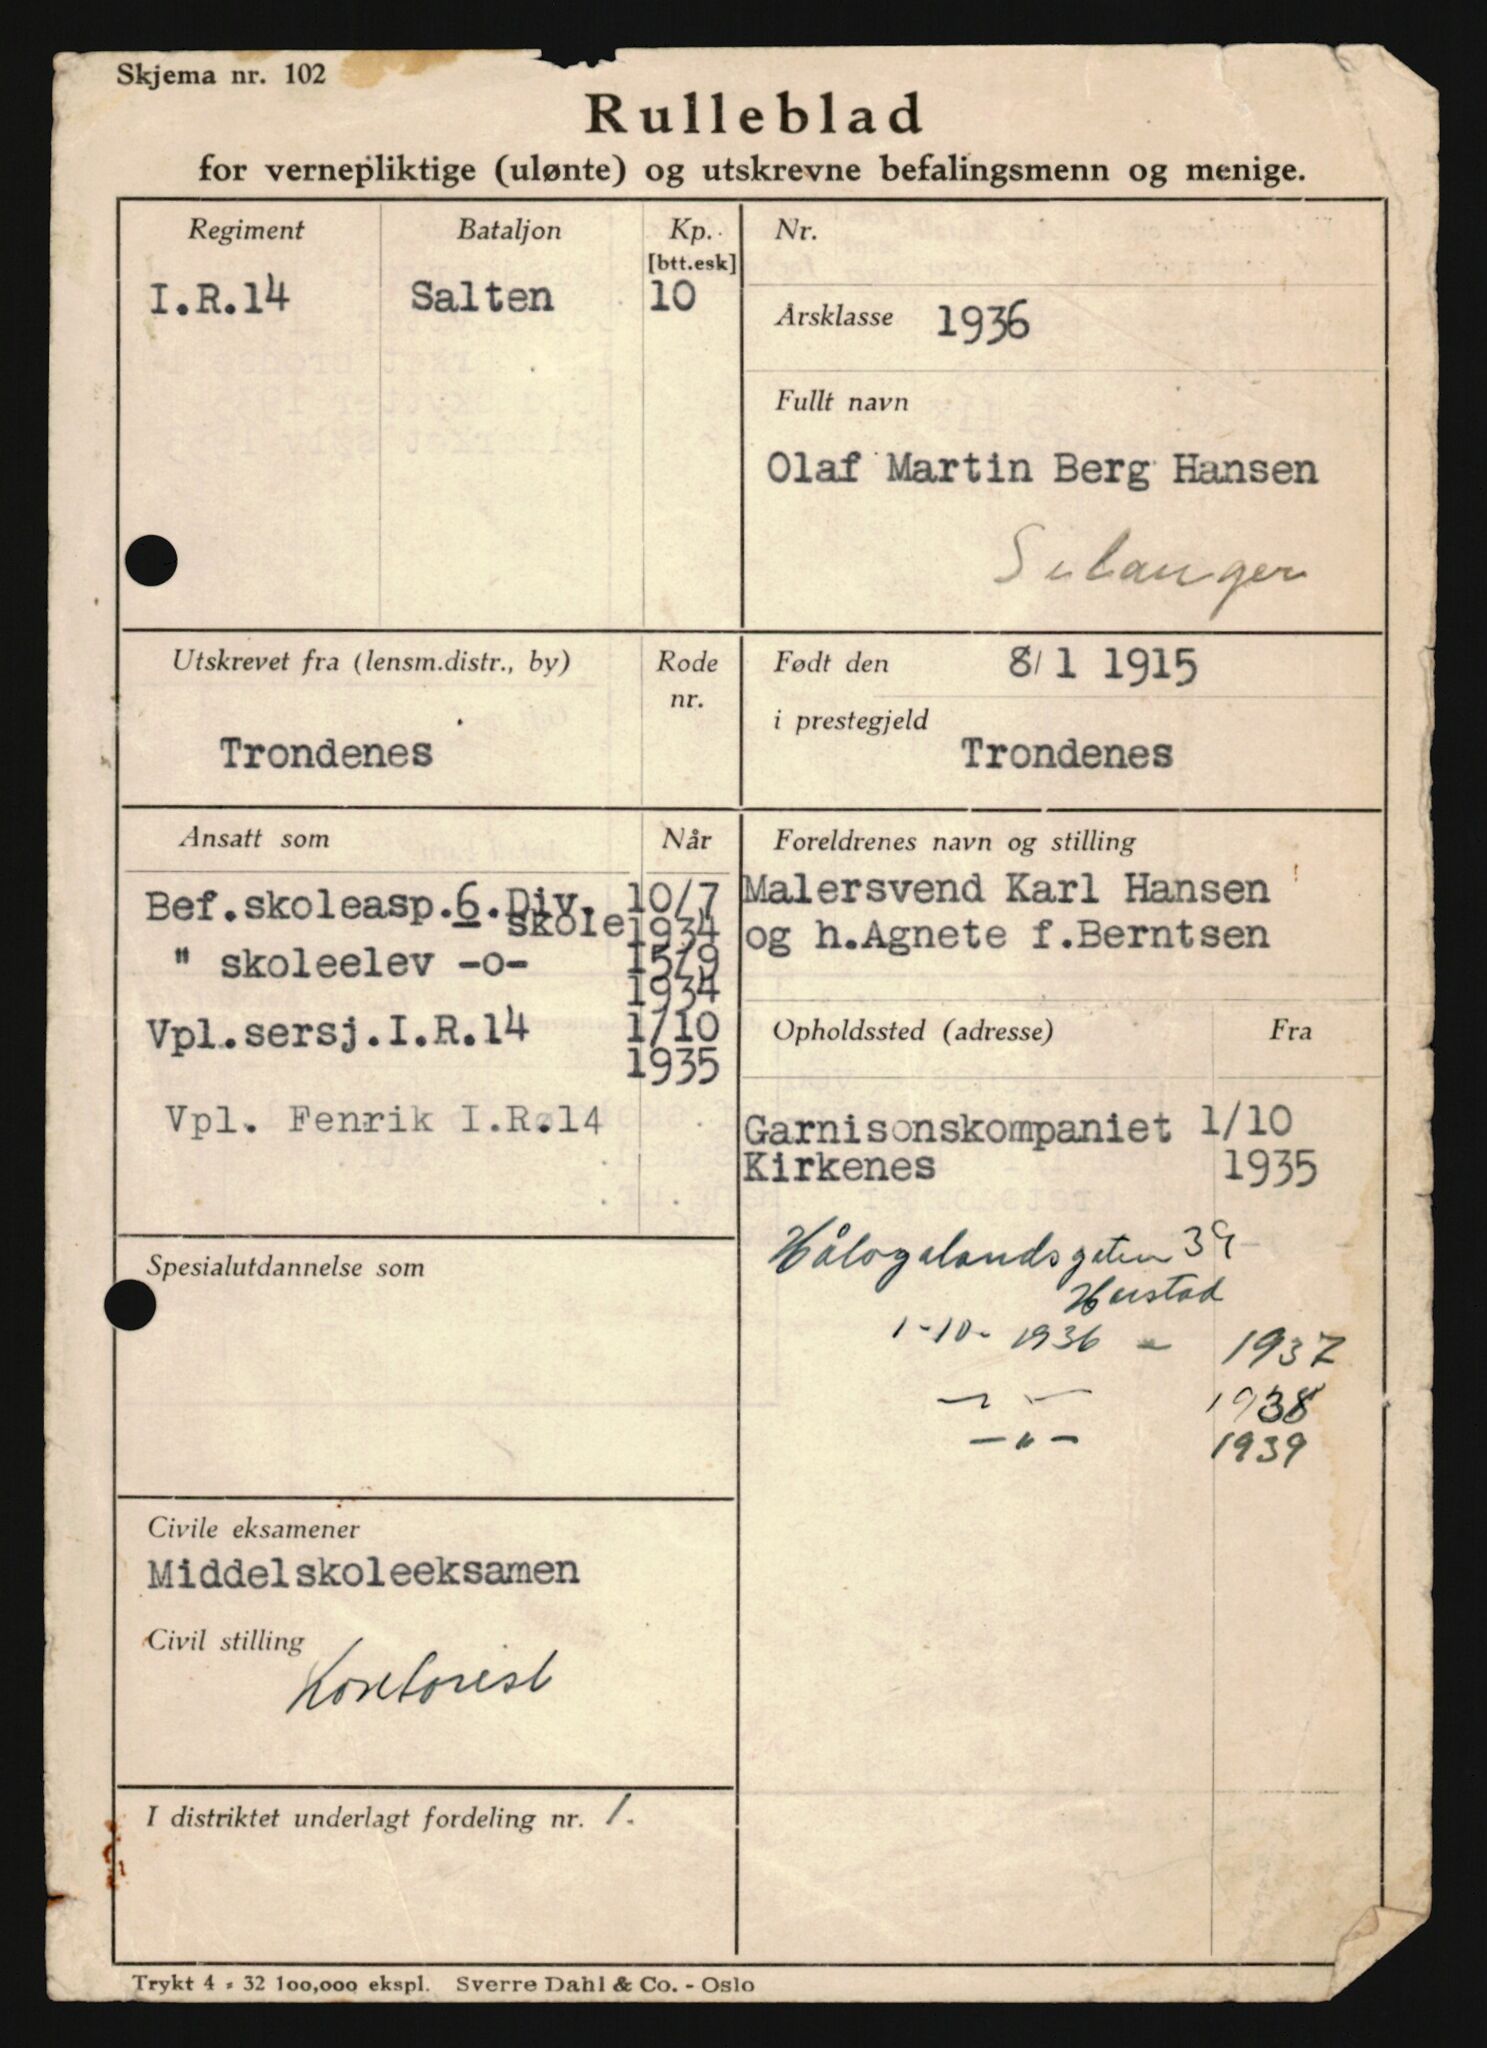 Skjema nr. 102
Rulleblad
for vernepliktige (ulønte) og utskrevne befalingsmenn og menige.
Regiment
Bataljon
Kp.
[btt.esk]
I.R.14
Salten
10
Nr.
Årsklasse 1936
Fullt navn
Olaf Martin Berg Hansen
Utskrevet fra (lensm.distr., by)
Rode
nr.
Trondenes
Født den 8/1 1915
i prestegjeld
Trondenes
Ansatt som
Når
Bef.skoleasp.6.Div. 10/7
skole 1934
" skoleelev -o- 15/9
1934
Vpl.sersj.I.R.14 1/10
1935
Vpl. Fenrik I.R.14
Foreldrenes navn og stilling
Malersvend Karl Hansen
og h.Agnete f.Berntsen
Opholdssted (adresse)
Fra
Garnisonskompaniet 1/10
Kirkenes 1935
Hålogalandsgaten 39
Harstad
1-10-1936 - 1937
-"- 1938
-"- 1939
Spesialutdannelse som
Civile eksamener
Middelskoleeksamen
Civil stilling
Kontorist
I distriktet underlagt fordeling nr. 1.
Trykt 4 - 32 100,000 ekspl. Sverre Dahl & Co. - Oslo